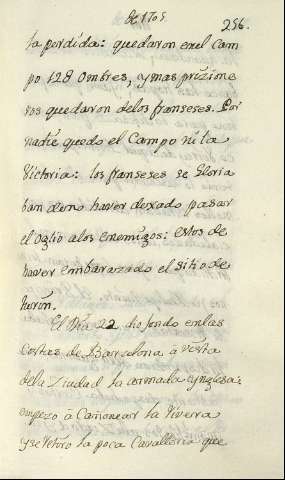 de 1705
256.
la perdida: quedaron en el Cam
po 128 Ombres, y mas prizione
ros quedaron de los franseses. Por
nadie quedo el Campo ni la
Victoria: los franseses se Gloria
ban de no haver dexado pasar
el Oglio a los enemigos: estos de
haver embarazado el sitio de
El Dia 22 dio fondo en las
Costas de Barcelona â vista
de la Ciudad la armada Ynglesa:
empezo â Cañonear la Rivera
y se retiro la poca Cavalleria que